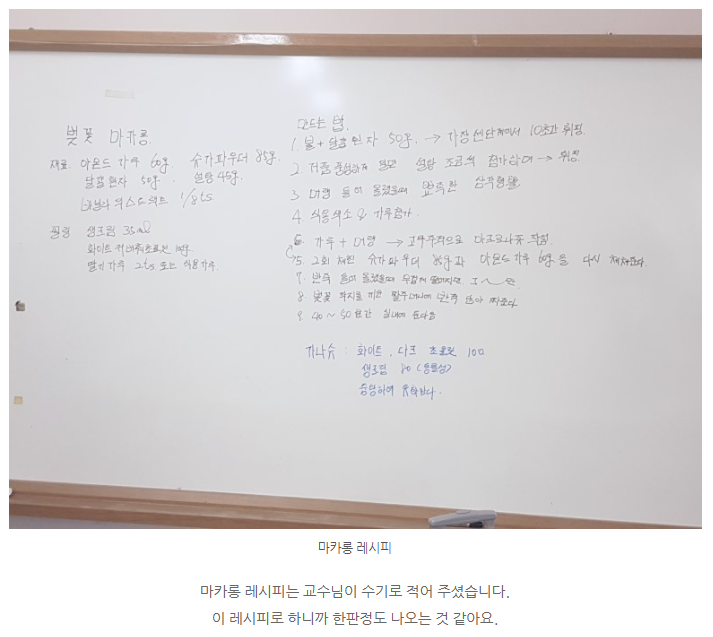 벚꽃 마카롱
재료 아몬드 가루 60g. 슈가파우더 85g.
달걀흰자 50g. 설탕 45g.
바닐라 익스트랙트 1/8ts
필링 생크림 35ml
화이트 커버춰초콜릿
딸기가루 2ts 또는 식용가루
만드는 법.
1. 볼 + 달걀흰자 50g. → 가장 센단계에서 10초간 휘핑.
2. 거품 풍성하게 설탕 조금씩 첨가하며 → 휘핑
3. 머랭 들어 올렸을때 뾰족한 삼각형뿔
4. 식용색소 & 가루첨가
6. 가루 + 머랭 → 마카로나쥬 작업
5. 2회 체친 슈가파우더 85g과 아몬드가루 60g을 다시 체쳐준다.
7. 반죽 들어 올렸을때
8. 벚꽃 반죽 담아 짜준다
9. 40 ~ 50분간 실내에
가나슈 : 화이트, 다크 초콜릿 100
생크림 80 (동물성)
중탕하여
마카롱 레시피
마카롱 레시피는 교수님이 수기로 적어 주셨습니다.
이 레시피로 하니까 한판정도 나오는 것 같아요.